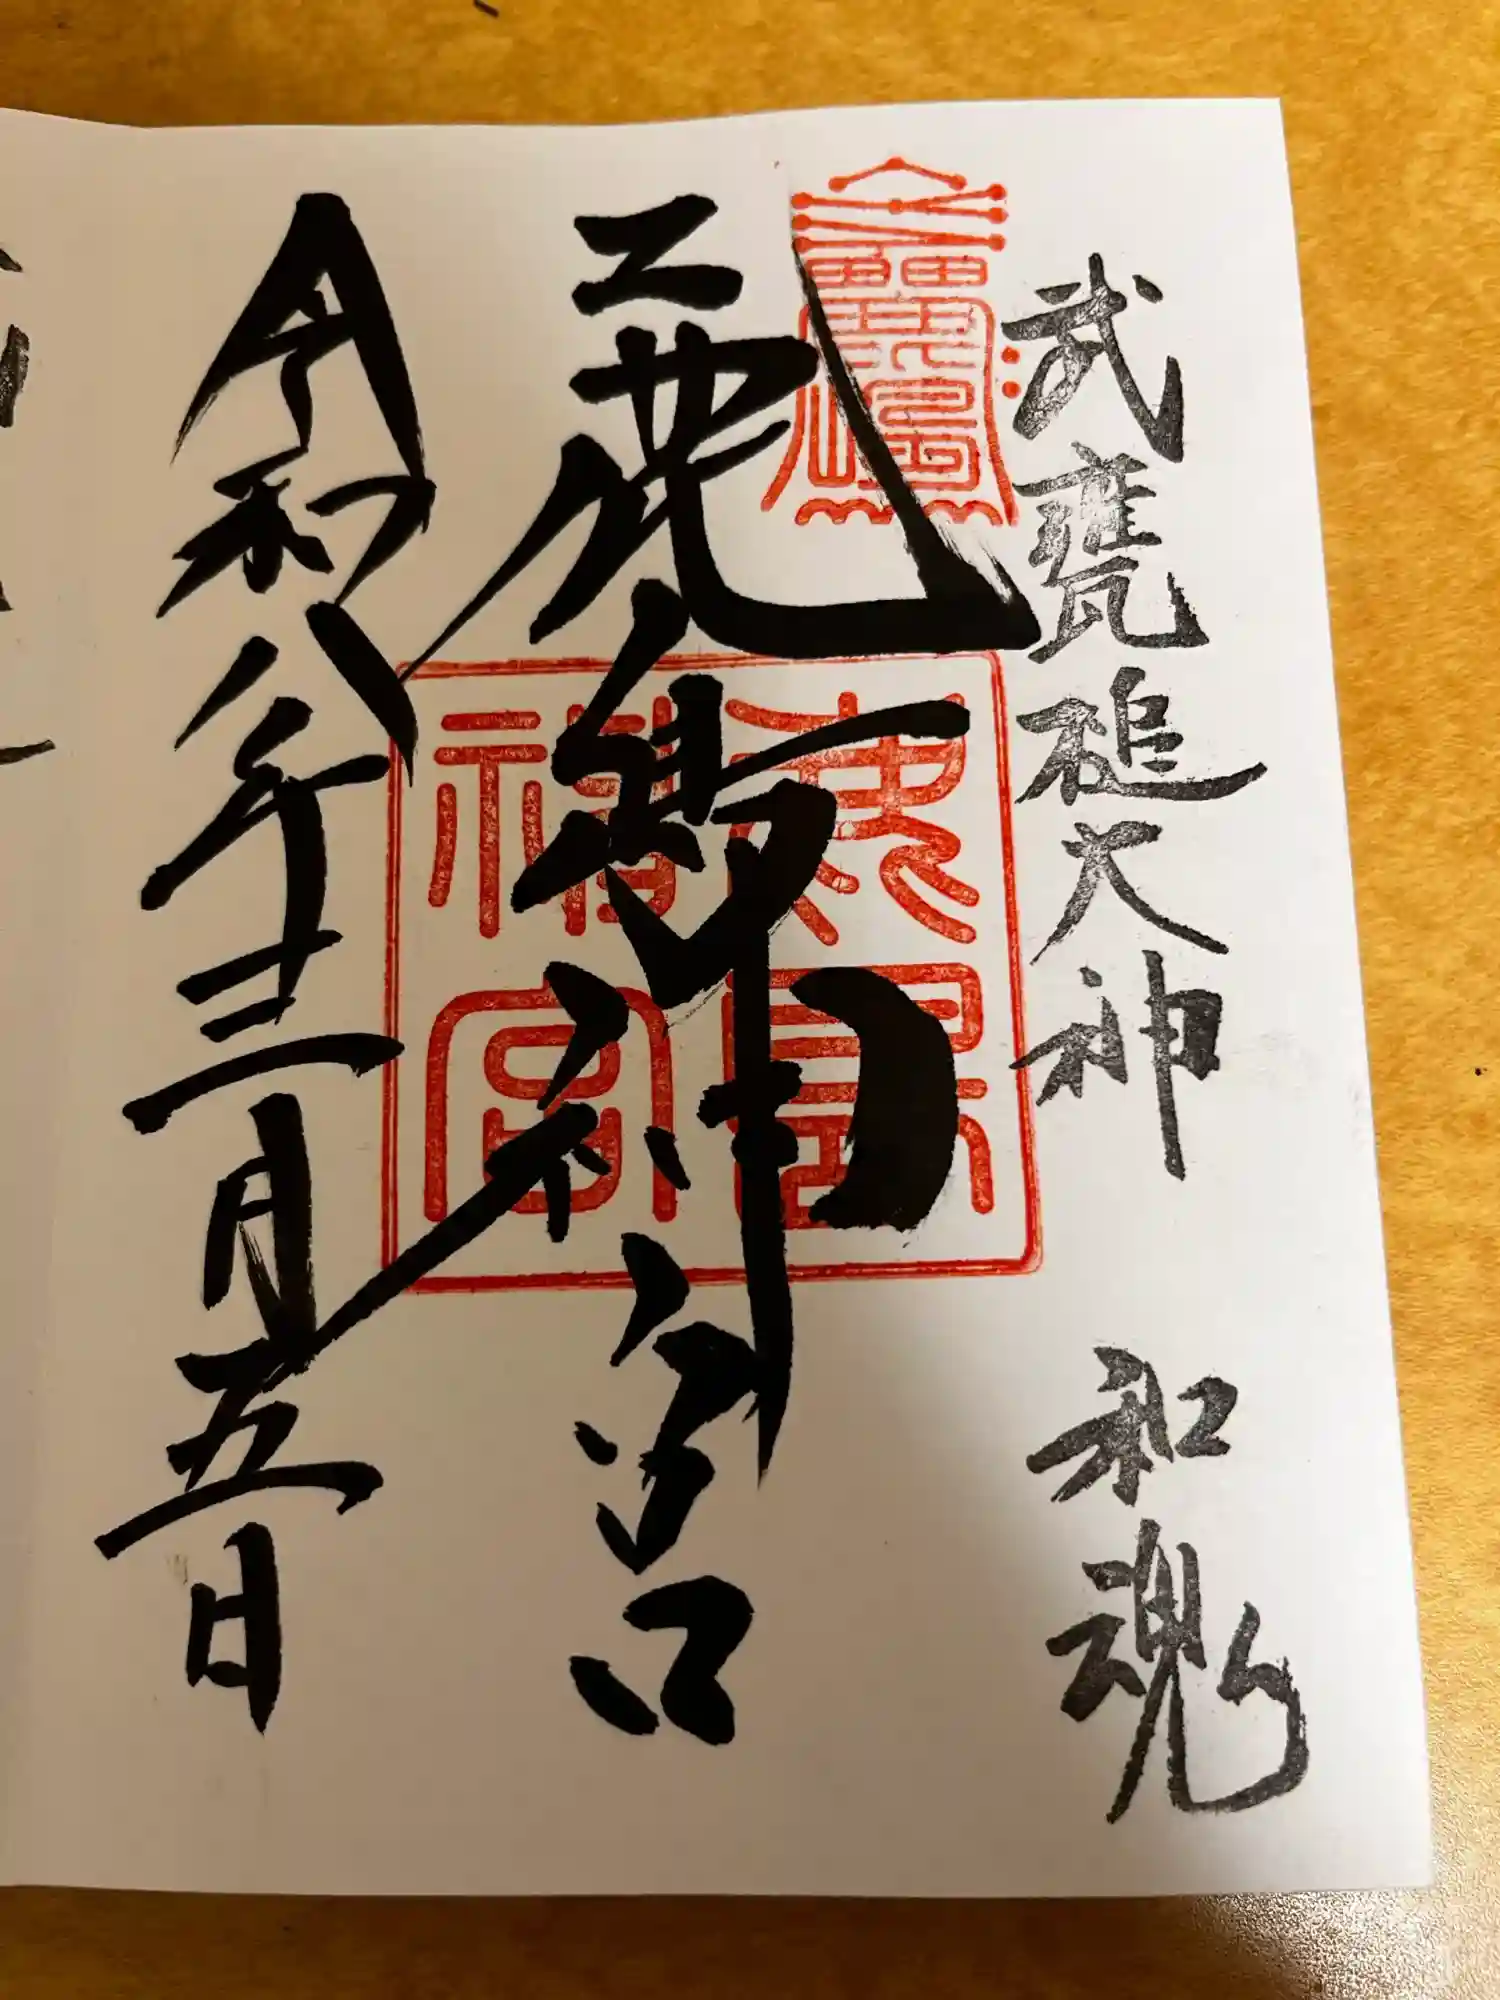 武甕槌大神 和魂
鹿島神宮
令和八年三月五日
鹿島
神宮